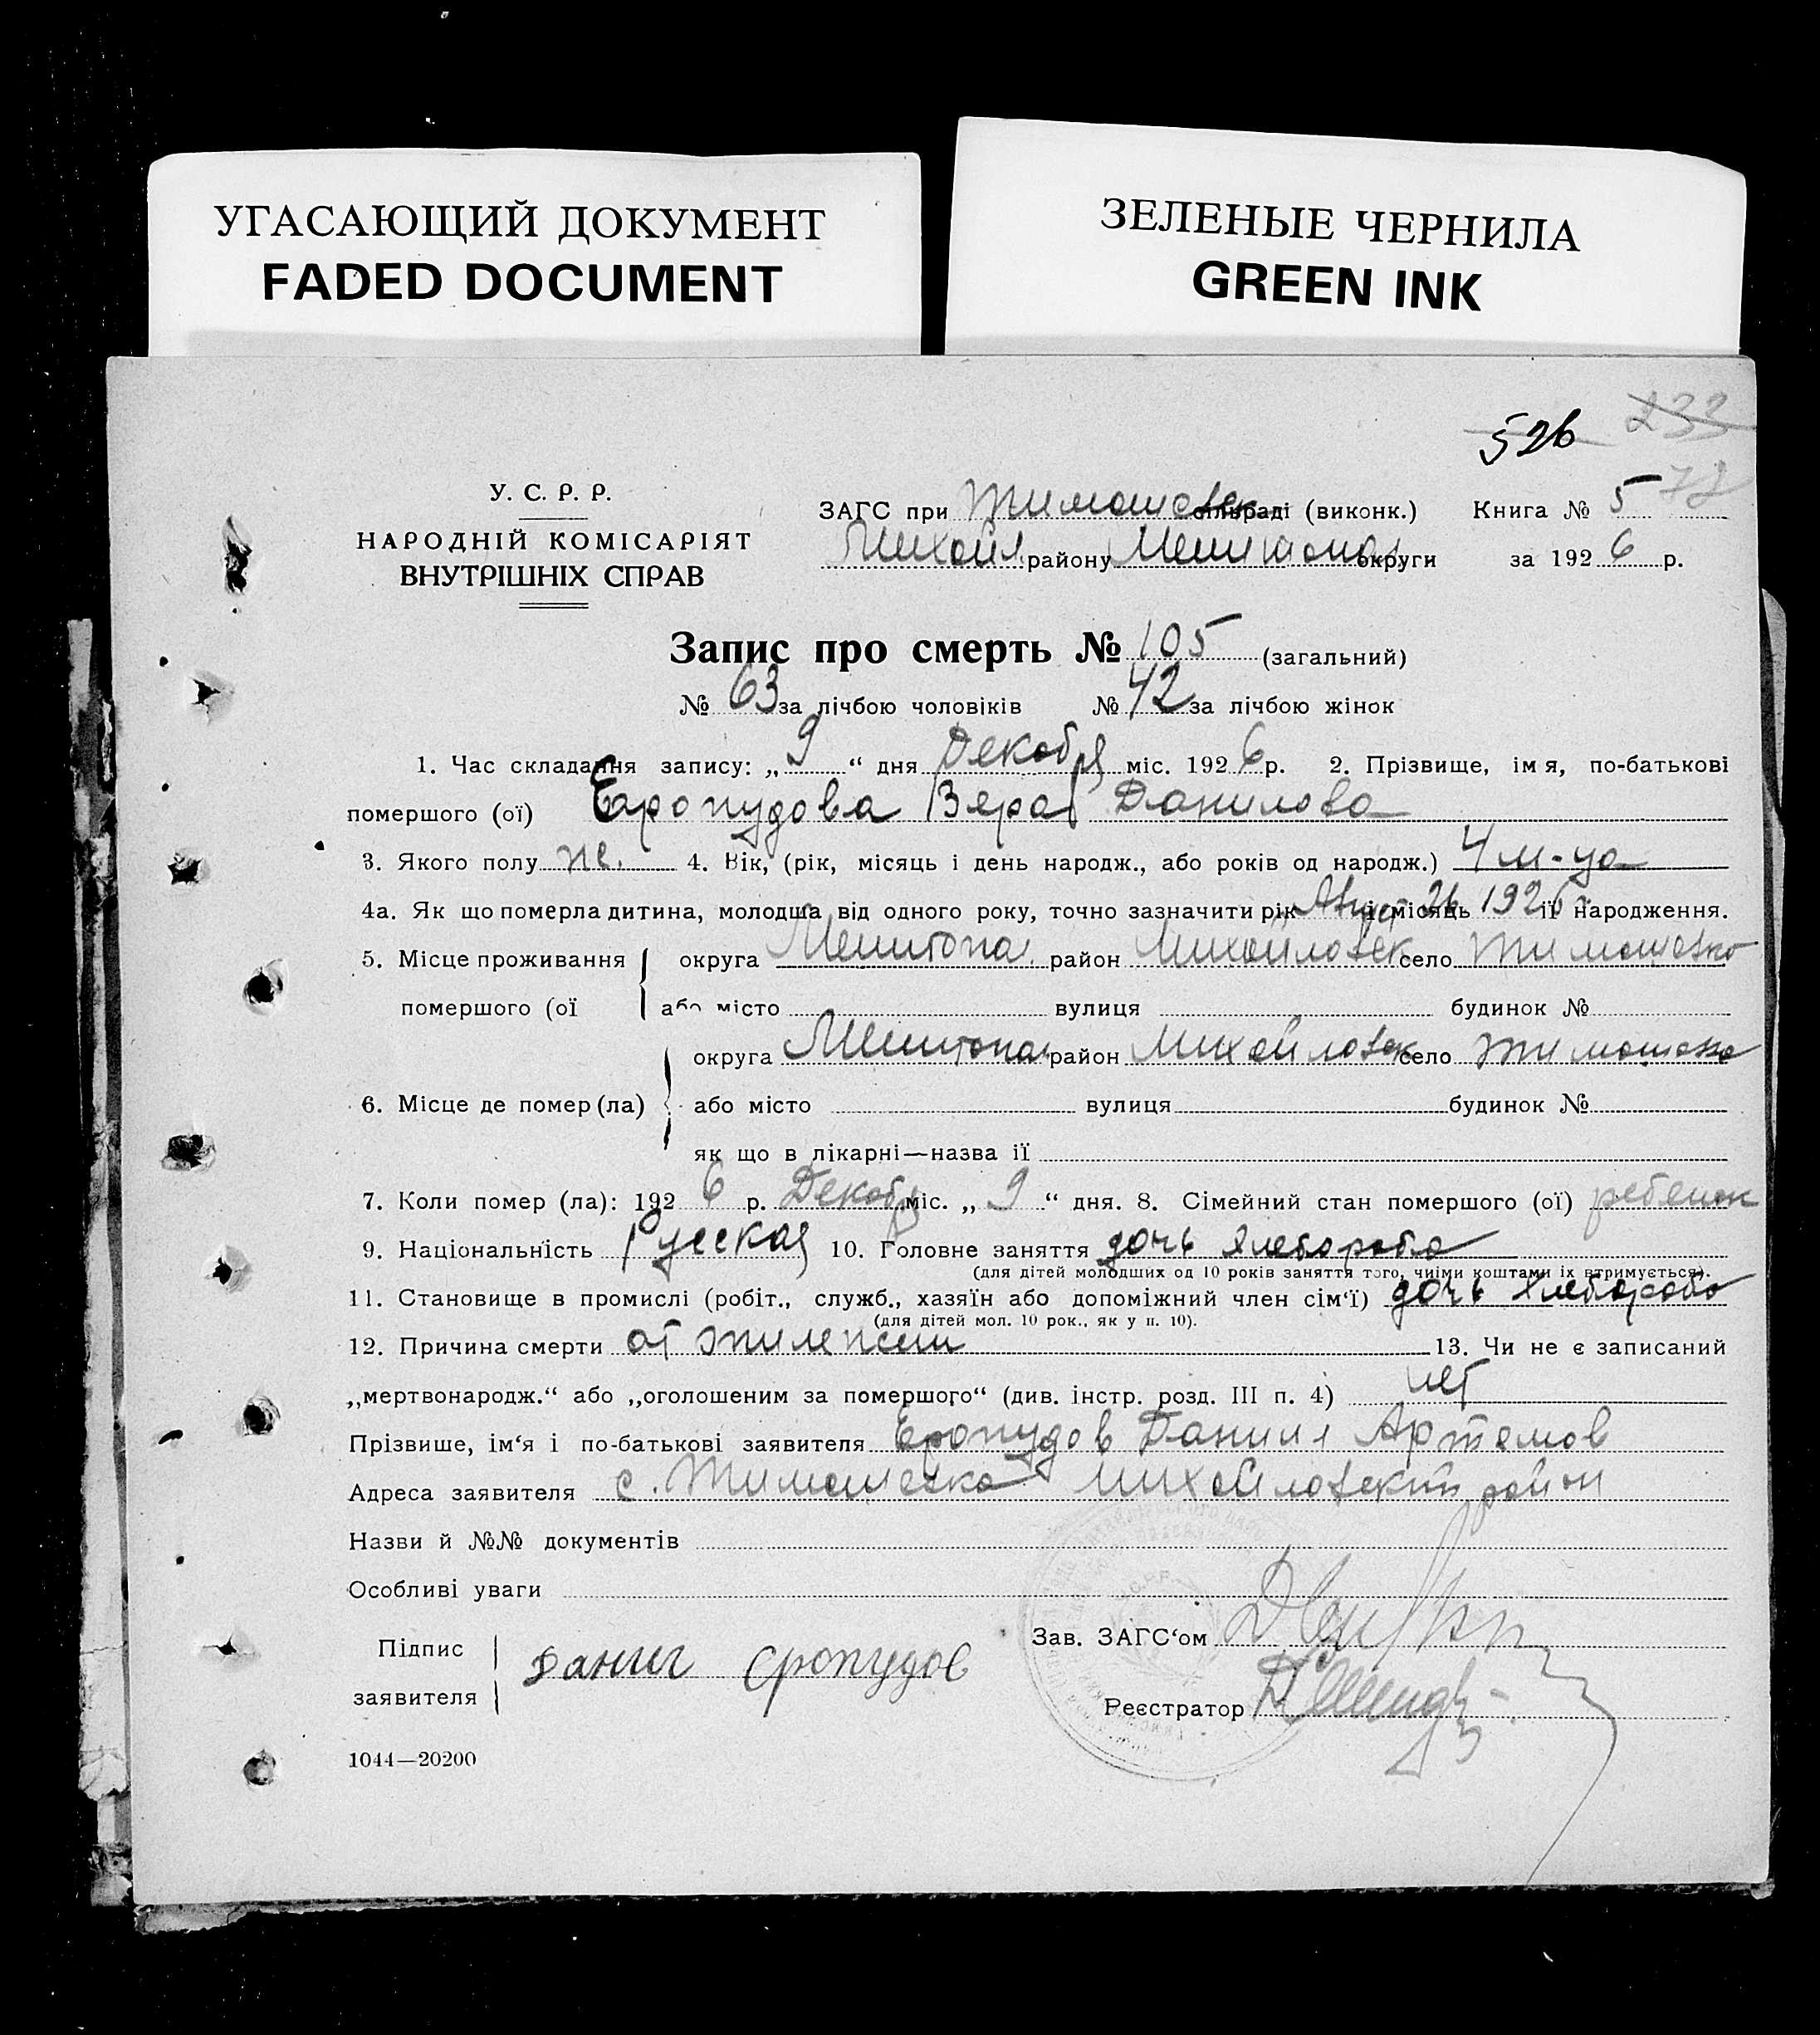 УГАСАЮЩИЙ ДОКУМЕНТ
FADED DOCUMENT
ЗЕЛЕНЫЕ ЧЕРНИЛА
GREEN INK
526 233
72
У. С. Р. Р.
НАРОДНІЙ КОМІСАРІЯТ
ВНУТРІШНІХ СПРАВ
ЗАГС при Тимошовск сільраді (виконк.) Книга № 5
Михайл району Мелитопол округи за 1926 р.
Запис про смерть № 105 (загальний)
№ 63 за лічбою чоловіків № 42 за лічбою жінок
1. Час складання запису: „9“ дня Декабря міс. 1926 р. 2. Прізвище, імя, по-батькові
помершого (ої) Еропудова Вера Данилова
3. Якого полу же. 4. Вік, (рік, місяць і день народж., або років од народж.) 4 м-ца
4а. Як що померла дитина, молодша від одного року, точно зазначити рік Август і місяць 26 1926 її народження.
5. Місце проживання округа Мелитопол. район Михайловск село Тимошовка
помершого (ої або місто вулиця будинок №
округа Мелитопол район Михайловск село Тимошовка
6. Місце де помер (ла) або місто вулиця будинок №
як що в лікарні—назва ії
7. Коли помер (ла): 1926 р. Декабря міс. „9“ дня. 8. Сімейний стан помершого (ої) ребенок
9. Національність Русская 10. Головне заняття дочь хлебороба
(для дітей молодших од 10 років заняття того, чиїми коштами їх втримується).
11. Становище в промислі (робіт., служб., хазяїн або допоміжний член сім‘ї) дочь хлебороба
(для дітей мол. 10 рок., як у п. 10).
12. Причина смерти от эпилепсии 13. Чи не є записаний
„мертвонародж.“ або „оголошеним за помершого“ (див. інстр. розд. III п. 4) нет
Прізвише, ім‘я і по-батькові заявителя Еропудов Данил Артемов
Адреса заявителя с. Тимошовка Михайловский район
Назви й №№ документів
Особливі уваги
Підпис
заявителя
Данил Еропудов
Зав. ЗАГС‘ом
Реєстратор
1044—20200